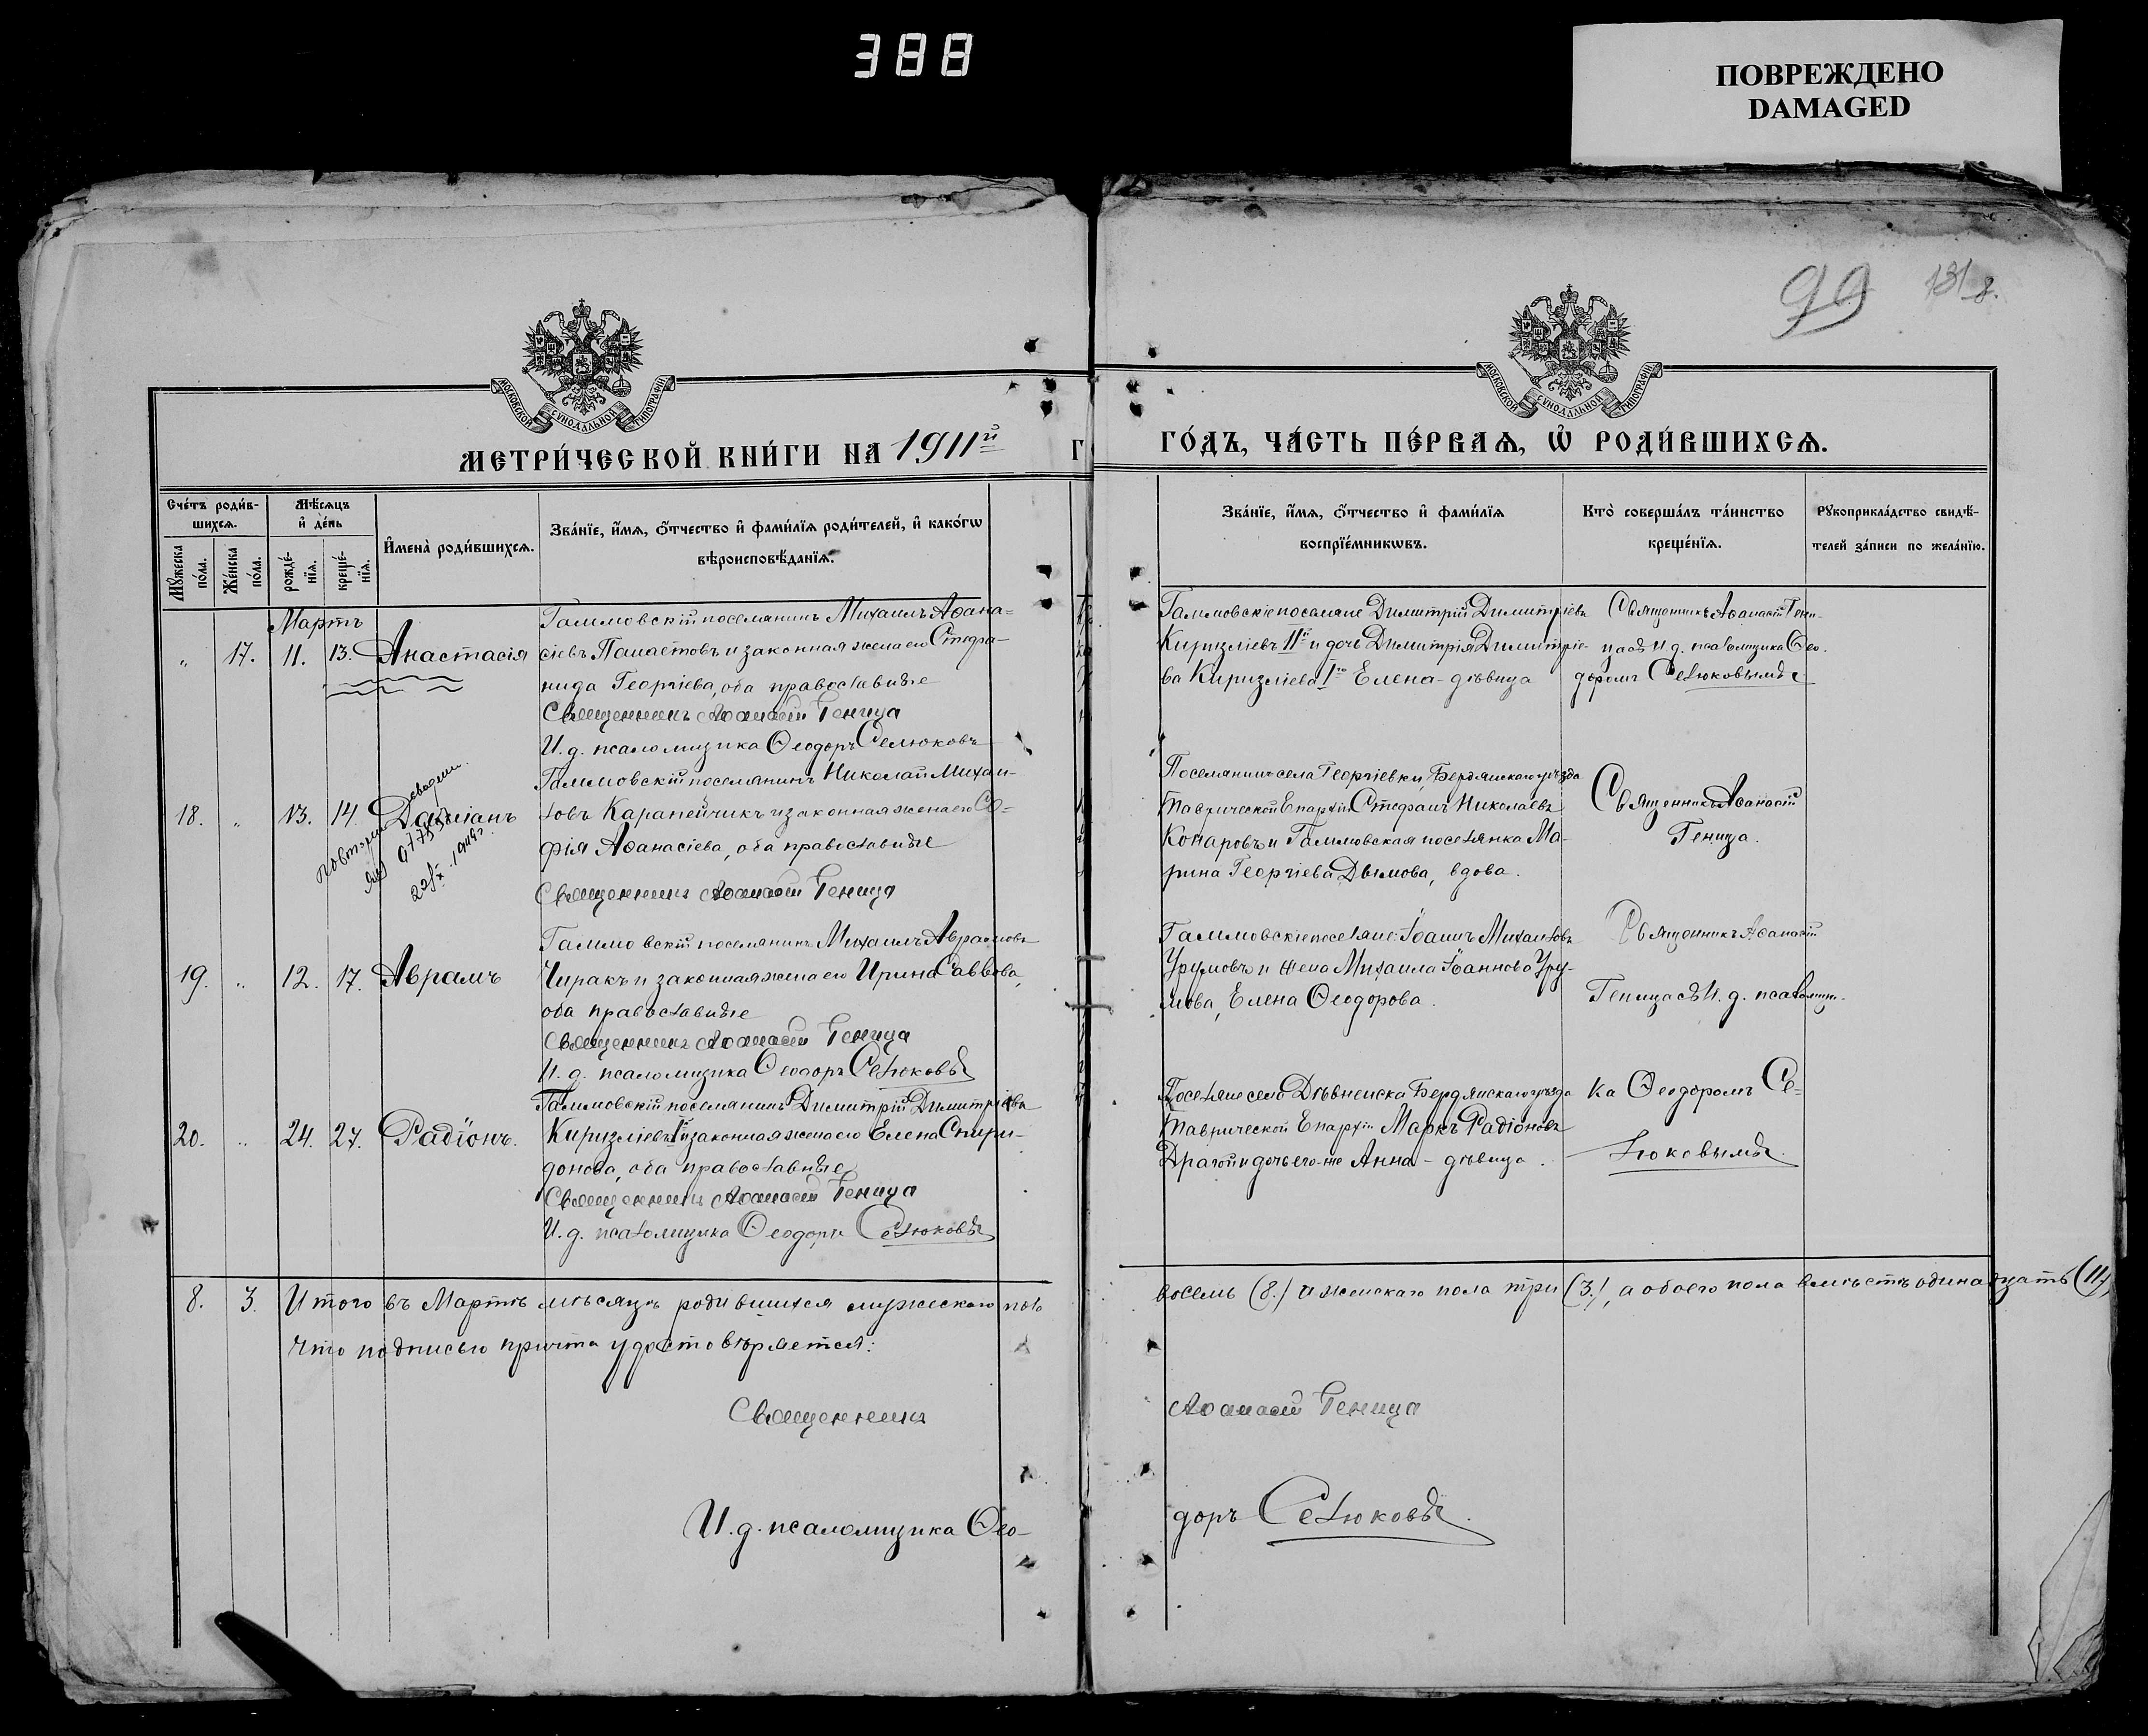 388
ПОВРЕЖДЕНО
DAMAGED
99
131
8.
МОСКОВСКОЙ СУНОДАЛЬНОЙ ТИПОГРАФІИ
МОСКОВСКОЙ СУНОДАЛЬНОЙ ТИПОГРАФІИ
МЕТРИ́ЧЕСКОЙ КНИ́ГИ НА 1911й
ГО́ДЪ, ЧА́СТЬ ПЕ́РВАѦ, Ѡ РОДИ́ВШИХСѦ.
Сче́тъ роди́в-
шихсѧ.
Мꙋжеска по́ла.
Же́нска по́ла.
Мѣ́сѧцъ
и҆ де́нь
рожде́-
нїѧ.
креще́-
нїѧ.
И҆мена̀ роди́вшихсѧ.
Зва́нїе, и҆́мѧ, ѻ҆́тчество и҆ фами́лїѧ роди́телей, и҆ како́гѡ
вѣроисповѣ́данїѧ.
Зва́нїе, и҆́мѧ, ѻ҆́тчество и҆ фами́лїѧ
воспрїе́мникѡвъ.
Кто̀ соверша́лъ та́инство
креще́нїѧ.
Рꙋкоприкла́дство свидѣ́-
телей за́писи по жела́нїю.
Мартъ
„ 17. 11. 13. Анастасія
Гаммовскій поселянинъ Михаилъ Аѳана-
сіевъ Панаетовъ и законная жена его Стефа-
нида Георгіева, оба православные
Священникъ Аѳанасій Геница
И. д. псаломщика Ѳеодоръ Селюковъ
Гаммовскіе поселяне Димитрій Димитріевъ
Киризліевъ IIй и дочь Димитрія Димитріе-
ва Киризліева Iго Елена - дѣвица
Священникъ Аѳанасій Гени-
ца съ И. д. псаломщика Ѳео-
доромъ Селюковымъ
18. „ 13. 14. Даміанъ
22/X 1949 г.
Гаммовскій поселянинъ Николай Михаи-
ловъ Карапейчикъ и законная жена его Со-
фія Аѳанасіева, оба православные
Священникъ Аѳанасій Геница
Поселянинъ села Георгіевки, Бердянскаго уѣзда
Таврической Епархіи Стефанъ Николаевъ
Комаровъ и Гаммовская поселянка Ма-
рина Георгіева Дымова, вдова.
Священникъ Аѳанасій
Геница.
19. „ 12. 17. Аврамъ
Гаммовскій поселянинъ Михаилъ Аврамовъ
Чиракъ и законная жена его Ирина Саввова,
оба православные
Священникъ Аѳанасій Геница
И. д. псаломщика Ѳеодоръ Селюковъ
Гаммовскіе поселяне: Іоаннъ Михаиловъ
Урумовъ и жена Михаила Іоаннова Уру-
мова, Елена Ѳеодорова.
Священникъ Аѳанасій
Геница съ И. д. псаломщи-
20. „ 24. 27. Радіонъ.
Гаммовскій поселянинъ Димитрій Димитріевъ
Киризліевъ Iй и законная жена его Елена Спири-
донова, оба православные
Священникъ Аѳанасій Геница
И. д. псаломщика Ѳеодоръ Селюковъ
Поселяне села Дѣвненска Бердянскаго уѣзда
Таврической Епархіи Маркъ Радіоновъ
Драгой и дочь его-же Анна - дѣвица.
ка Ѳеодоромъ Се-
люковымъ.
8. 3. Итого въ Мартѣ мѣсяцѣ родившихся мужескаго пола
восемь (8.) и женскаго пола три (3.), а обоего пола вмѣстѣ одинадцать (11),
что подписью причта удостовѣряется:
Священникъ
Аѳанасій Геница
И. д. псаломщика Ѳео-
доръ Селюковъ.